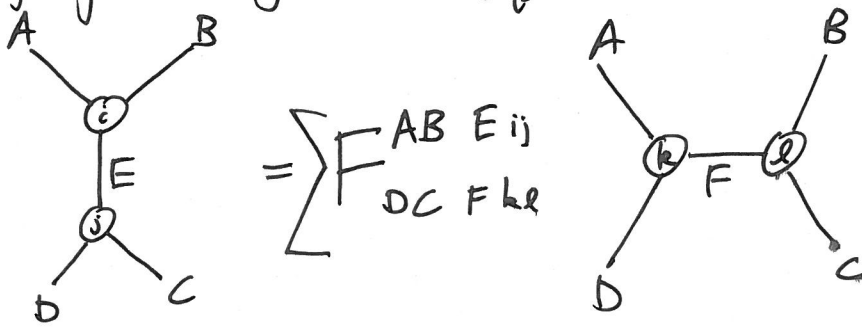 A B
i
E
j
D C
= ∑ F AB E ij
DC F kl
A B
k F l
D C